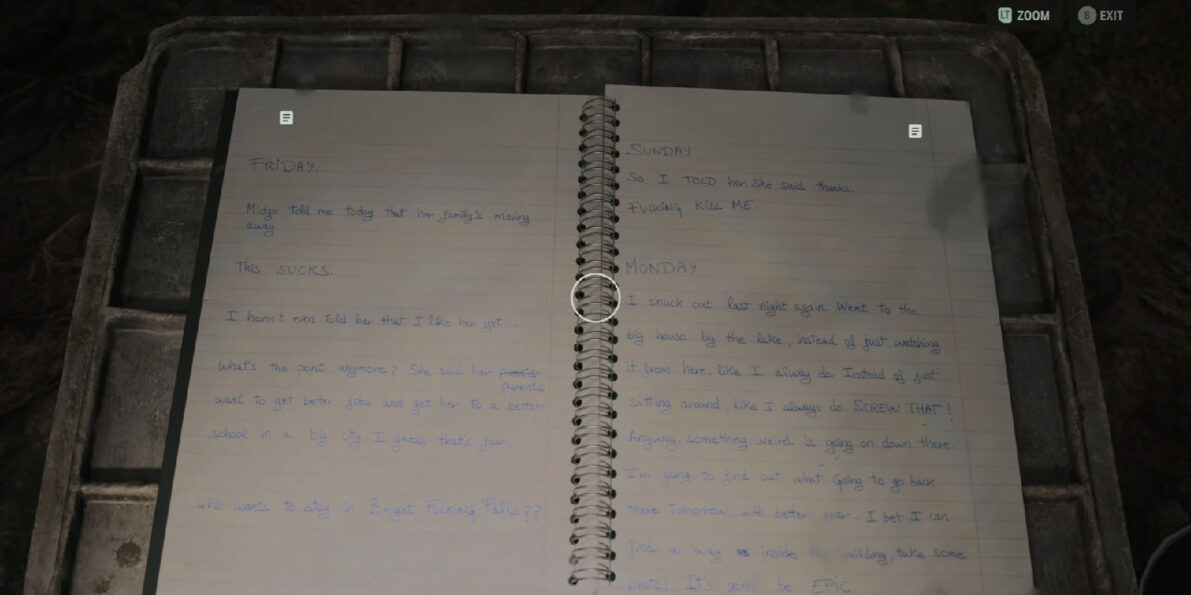 LT ZOOM
B EXIT
FRIDAY.
Midge told me today that her family's moving
away
This SUCKS.
I haven't even told her that I like her yet...
what's the point anymore? She said her
parents
want to get better jobs and get her to a better
school in a big city. I guess that's fair
who wants to stay in Bright FUCKING Falls??
SUNDAY
So I TOLD her. She said thanks.
FUCKING KILL ME.
MONDAY
I snuck out last night again. Went to the
big house by the lake, instead of just watching
it from here, like I alway do. Instead of just
sitting around, like I always do SCREW THAT!
Anyway something weird is going on down there
I'm going to find out what Going to go back
there tomorrow, with better. I bet I can
find a way inside, take some
photos. It's gonna be EPIC.